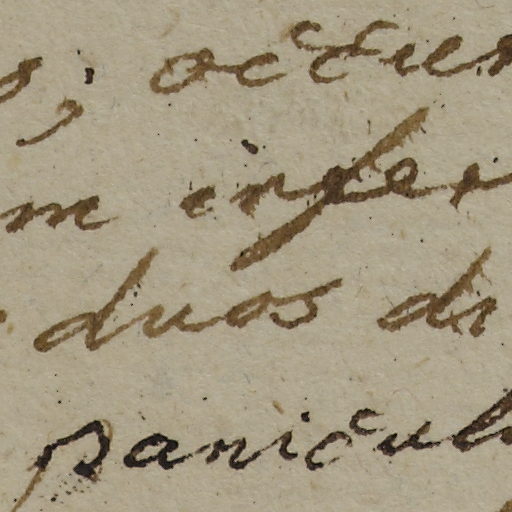 s; occur
m infer
duos di
panicul